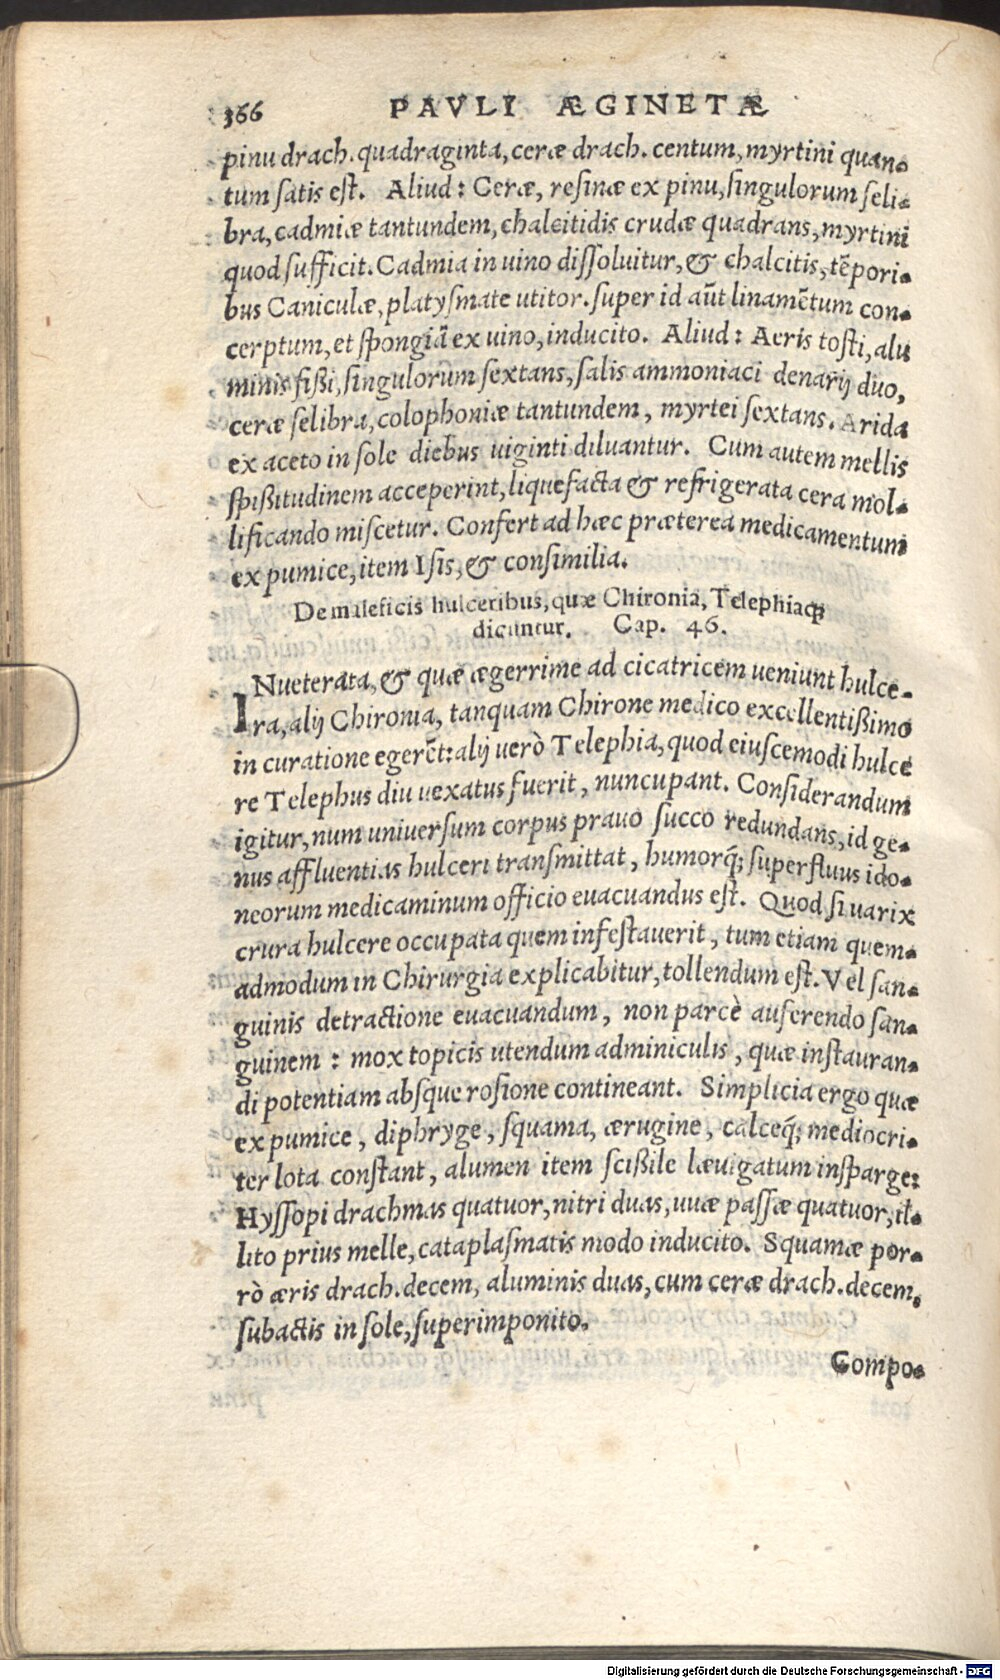 366 PAVLI ÆGINETÆ
pinu drach. quadraginta, ceræ drach. centum, myrtini quan-
tum satis est. Aliud: Ceræ, resinæ ex pinu, singulorum seli-
bra, cadmiæ tantundem, chalcitidis crudæ quadrans, myrtini
quod sufficit. Cadmia in uino dissoluitur, & chalcitis, tēpori-
bus Caniculæ, platysmate utitor. super id aūt linamētum con-
cerptum, et spongiā ex uino, inducito. Aliud: Aeris tosti, alu
minis fißi, singulorum sextans, salis ammoniaci denarij duo,
ceræ selibra, colophoniæ tantundem, myrtei sextans. Arida
ex aceto in sole diebus uiginti diluantur. Cum autem mellis
spißitudinem acceperint, liquefacta & refrigerata cera mol-
lificando miscetur. Confert ad hæc præterea medicamentum
ex pumice, item Isis, & consimilia.
De maleficis hulceribus, quæ Chironia, Telephiaq́;
dicuntur. Cap. 46.
INueterata, & quæ ægerrime ad cicatricem ueniunt hulce-
ra, alij Chironia, tanquam Chirone medico excellentißimo
in curatione egerēt: alij uerò Telephia, quod eiuscemodi hulce
re Telephus diu uexatus fuerit, nuncupant. Considerandum
igitur, num uniuersum corpus prauo succo redundans, id ge-
nus affluentias hulceri transmittat, humorq́; superfluus ido-
neorum medicaminum officio euacuandus est. Quod si uarix
crura hulcere occupata quem infestauerit, tum etiam quem-
admodum in Chirurgia explicabitur, tollendum est. Vel san-
guinis detractione euacuandum, non parcè auferendo san-
guinem: mox topicis utendum adminiculis, quæ instauran-
di potentiam absque rosione contineant. Simplicia ergo quæ
ex pumice, diphryge, squama, ærugine, calceq́; mediocri-
ter lota constant, alumen item scißile læuigatum insparge:
Hyssopi drachmas quatuor, nitri duas, uuæ passæ quatuor, il-
lito prius melle, cataplasmatis modo inducito. Squamæ por-
rò æris drach. decem, aluminis duas, cum ceræ drach. decem,
subactis in sole, superimponito.
Compo-
Digitalisierung gefördert durch die Deutsche Forschungsgemeinschaft - DFG